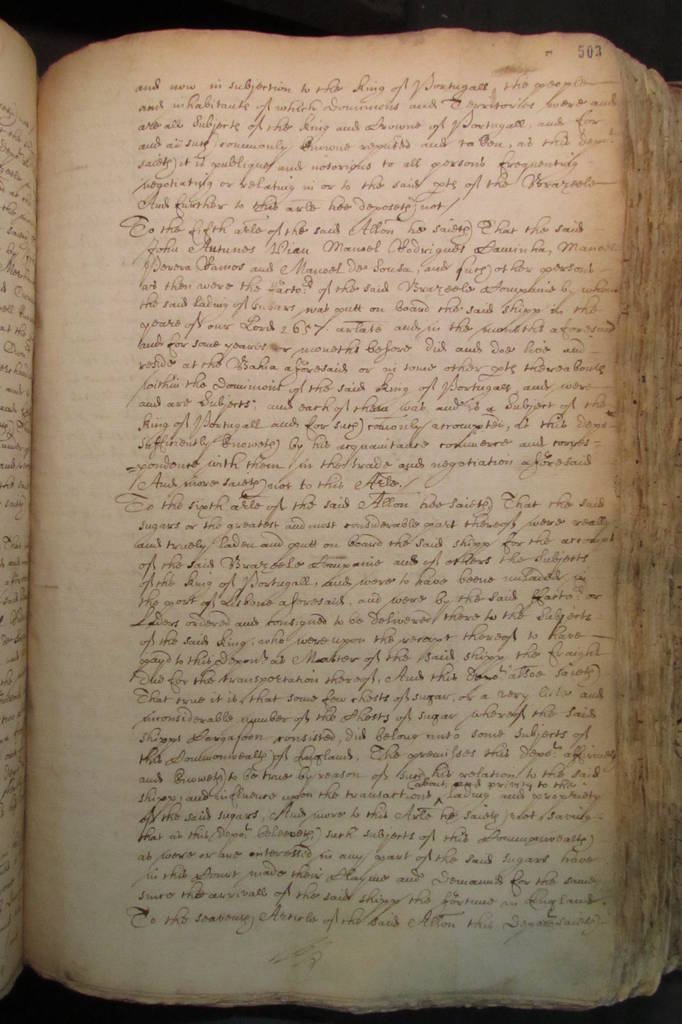 503
and now in subjection to the King of Portugall, the people
and inhabitants of which dominions and Territories were and
are all Subjects of the King and Crowne of Portugall, and for
and as such commonly knowne reputed and taken, as this depot
saieth it is publique and notorious to all persons frequenting
negotiating or relating in or to the said pts of the Brazeele
And further to this arle hee deposeth not /
To the fifth arle of the said Allon he saieth That the said
John Antunes Vian Manoel Rodrigues Caminha, Manoel
Perera Ramos and Manoel de Sousa, and such other persons
as then were the Factors of the said Brazeele Companie by whom
the said lading of sugars was putt on board the said shipp in the
yeare of our Lord 1657 arlate and in the moneths aforesaid
and for some yeares or moneths before did and doe live and
reside at the Bahia aforesaid or in some other pts thereabouts
within the dominions of the said King of Portugall, and were
and are Subjects, and each of them was and is a Subject of the
King of Portugall and for such comonly accompted, as this depot
sufficiently knoweth by his acquaintance commerce and corres-
pondence with them in the trade and negotiation aforesaid
And more saieth not to this Arle /
To the sixth arle of the said Allon hee saieth That the said
sugars or the greatest and most considerable part thereof were really
and truely laden and putt on board the said shipp for the account
of the said Brazeele Companie and of others the Subjects
of the King of Portugall, and were to have beene unladen in
the port of Lisbone aforesaid, and were by the said Factors or
Laders ordered and consigned to be delivered there to the Subjects
of the said King, who were upon the receipt thereof to have
payd to this depont as Master of the said shipp the fraight
due for the transportation thereof, And this depot alsoe saieth
That true it is, that some few chests of sugar, or a very little and
inconsiderable number of the Chests of sugar whereof the said
shipps Cargazoen consisted, did belong unto some Subjects of
this Commonwealth of England, The premisses this depot affirmeth
and knoweth to be true by reason of such his relation to the said
about, and privity to the
shipp, and influence upon the transactions ^ lading and propriety
of the said sugars, And more to this Arle he saieth not, saving
that as this depot beleeveth such subjects of this Commonwealth
as were or are interessed in any part of the said sugars have
in this Court made their Clayme and Demands for the same
since the arrivall of the said shipp the Fortune in England.
To the seaventh Article of the said Allon this depont saieth